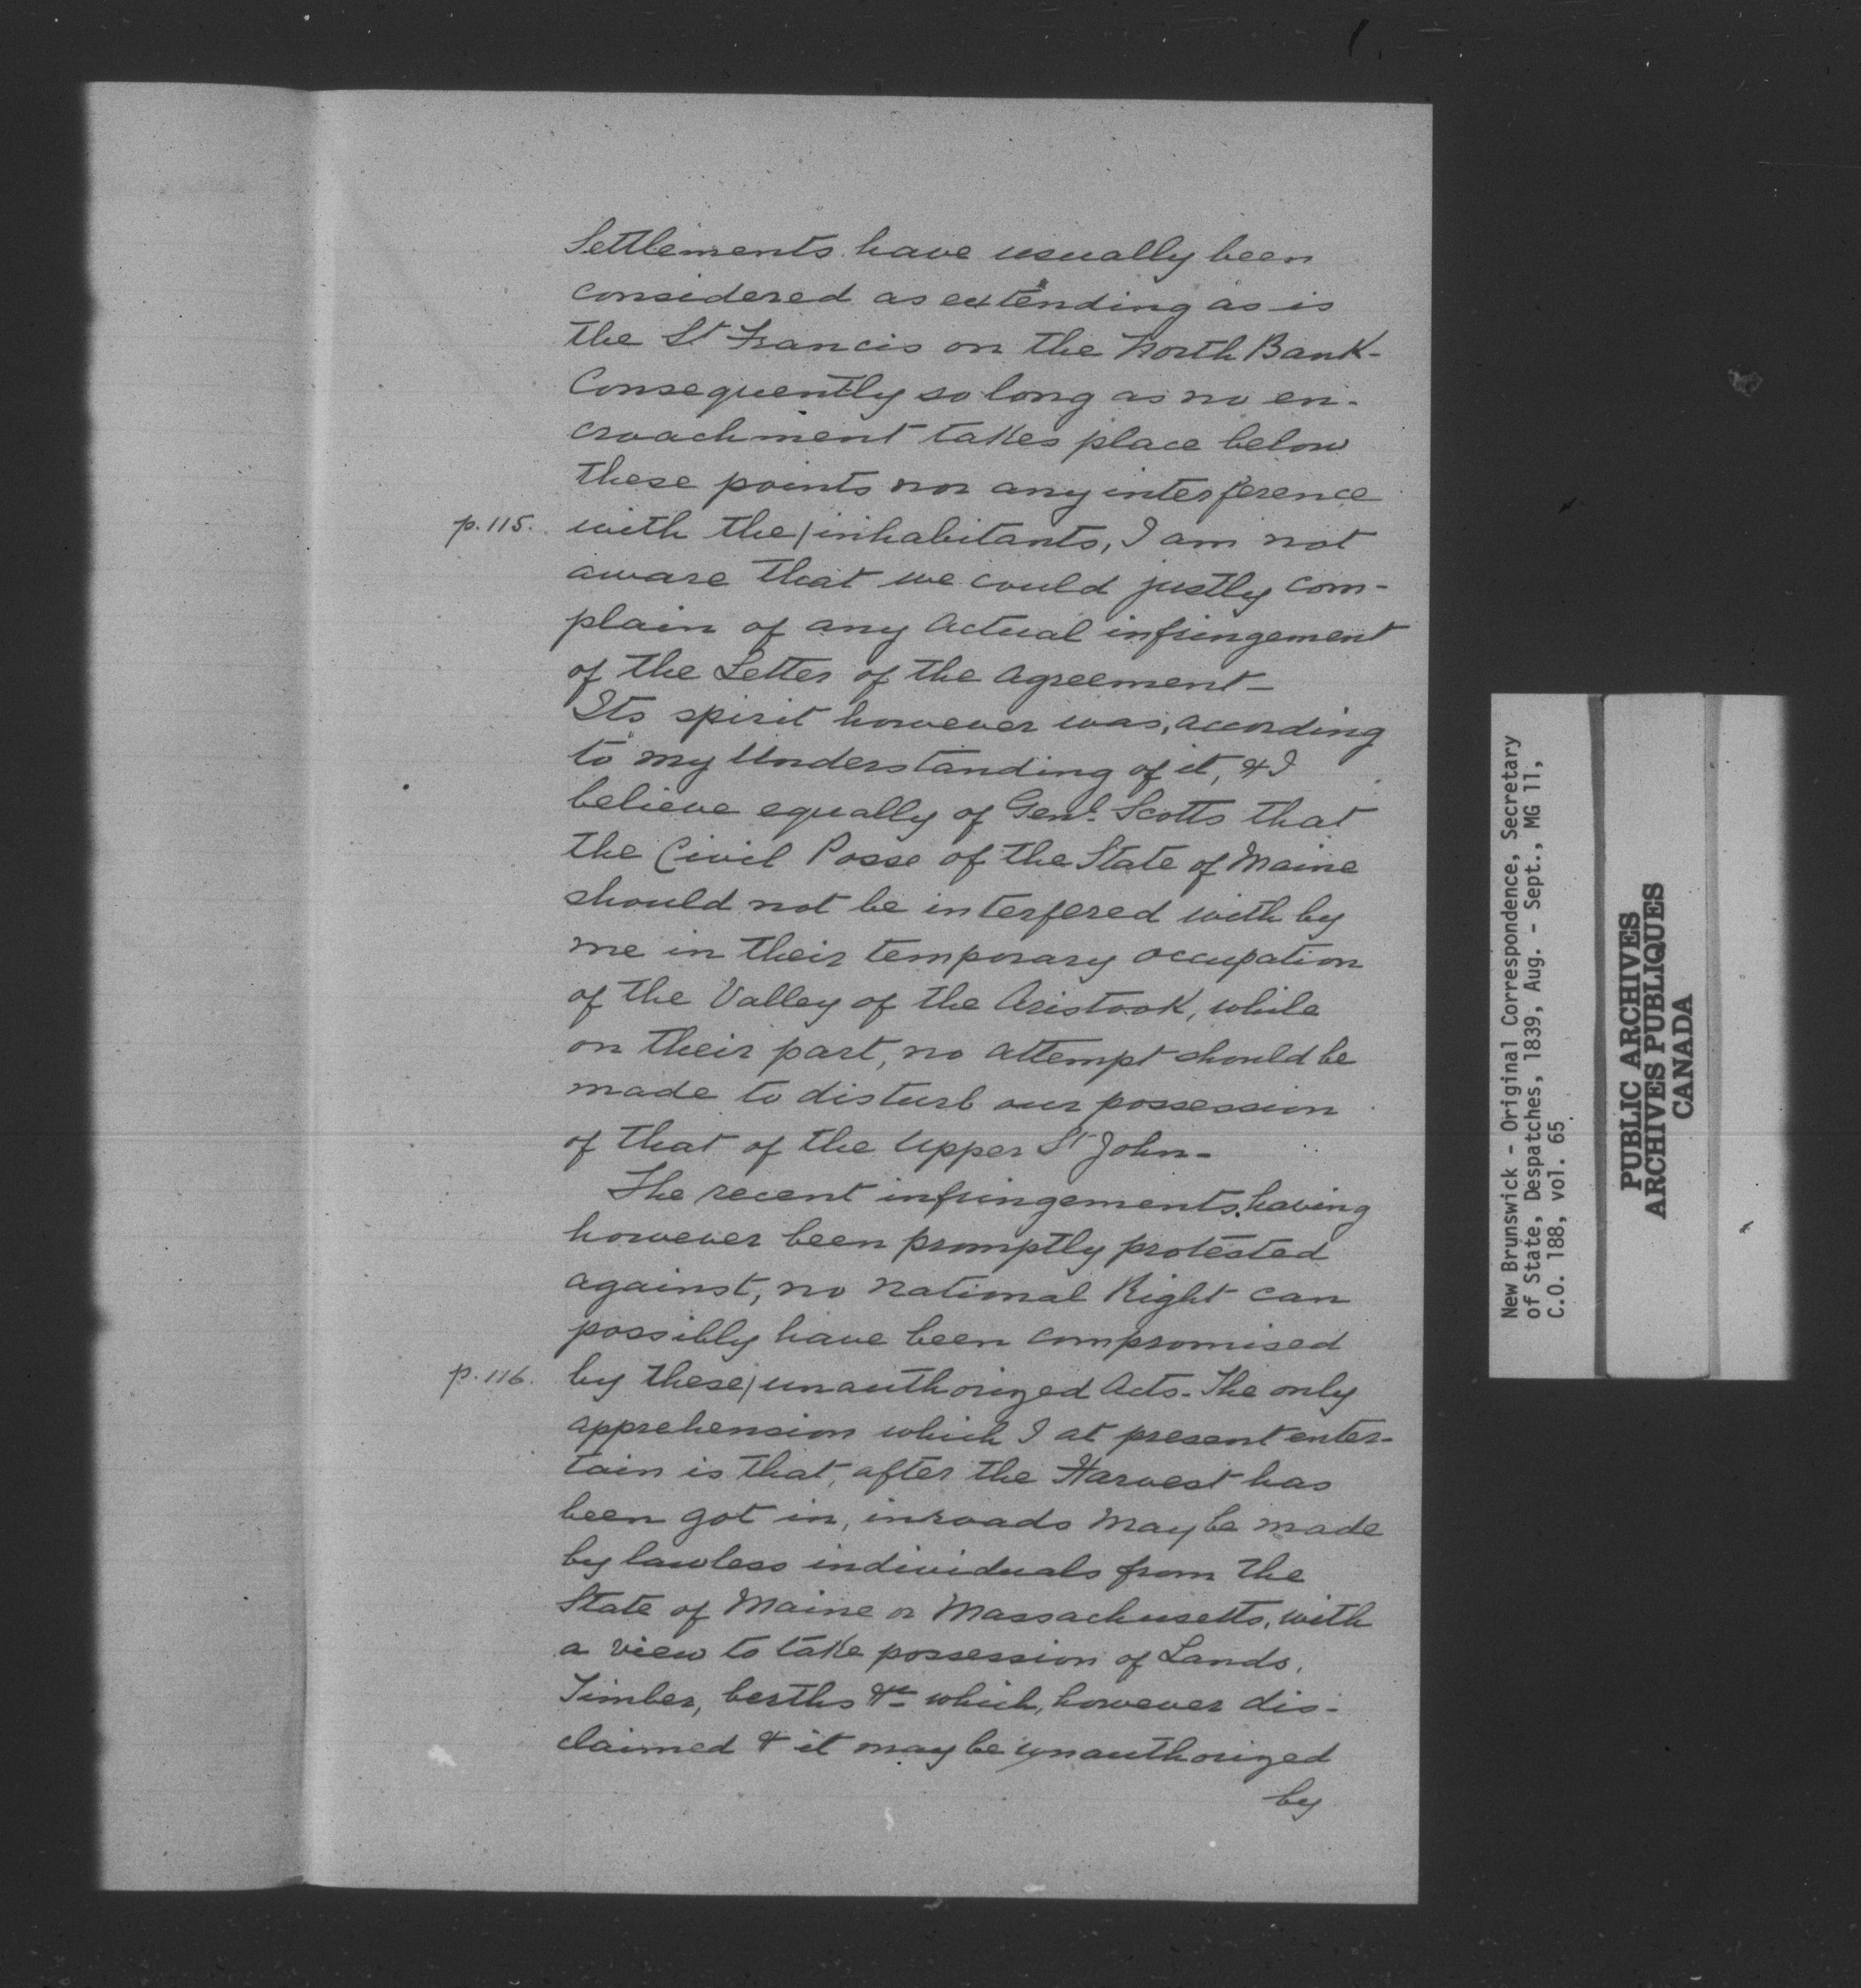 Settlements have usually been
considered as extending as is
the St Francis on the North Bank-
Consequently so long as no en-
croachment takes place below
these points nor any interference
p.115. with the/inhabitants, I am not
aware that we could justly com-
plain of any actual infringement
of the Letter of the Agreement-
Its spirit however was, according
to my Understanding of it, & I
believe equally of Genl. Scotts that
the Civil Posse of the State of Maine
should not be interfered with by
me in their temporary occupation
of the Valley of the Aristook, while
on their part, no attempt should be
made to disturb our possession
of that of the Upper St John-
The recent infringements, having
however been promptly protested
against, no National Right can
possibly have been compromised
p.116. by these/unauthorized Acts- The only
apprehension which I at present enter-
tain is that, after the Harvest has
been got in, inroads may be made
by lawless individuals from the
State of Maine or Massachusetts, with
a view to take possession of Lands,
Timber, berths &c which, however dis-
claimed & it may be unauthorized
by
New Brunswick - Original Correspondence, Secretary
of State, Despatches, 1839, Aug. - Sept., MG 11,
C.O. 188, vol. 65
PUBLIC ARCHIVES
ARCHIVES PUBLIQUES
CANADA